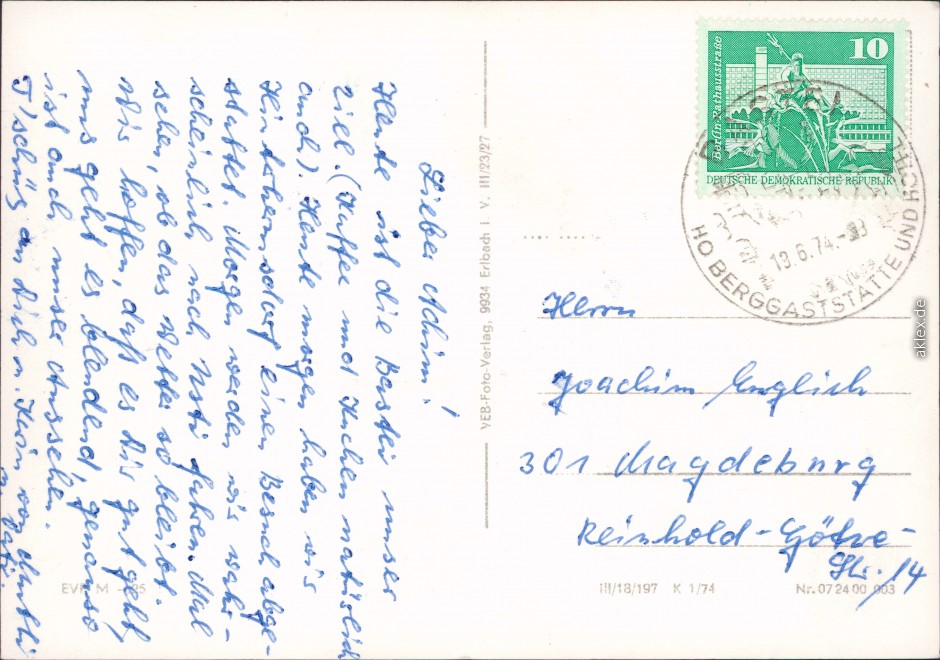 Lieber Achim!
Heute ist die Bastei unser
Ziel. (Kaffee und Kuchen natürlich
auch). Heute morgen haben wir
Hinterhermsdorf einen Besuch abge-
stattet. Morgen werden wir wahr-
scheinlich nach Usti fahren. Mal
sehen, ob das Wetter so bleibt.
Wir hoffen, daß es Dir gut geht,
uns geht es blendend, genauso
ist auch unser Aussehen.
Tschüß an Dich u. Kevin von Mutti
u. Vati.
VEB-Foto-Verlag, 9934 Erlbach i. V. III/23/27
10
Berlin, Rathausstraße
DEUTSCHE DEMOKRATISCHE REPUBLIK
13.6.74.
HO BERGGASTSTÄTTE UND
Herrn
Joachim Englich
301 Magdeburg
Reinhold-Götze-
Str. 14
EVP M -,25
III/18/197 K 1/74
Nr. 07 24 00 003
aklex.de